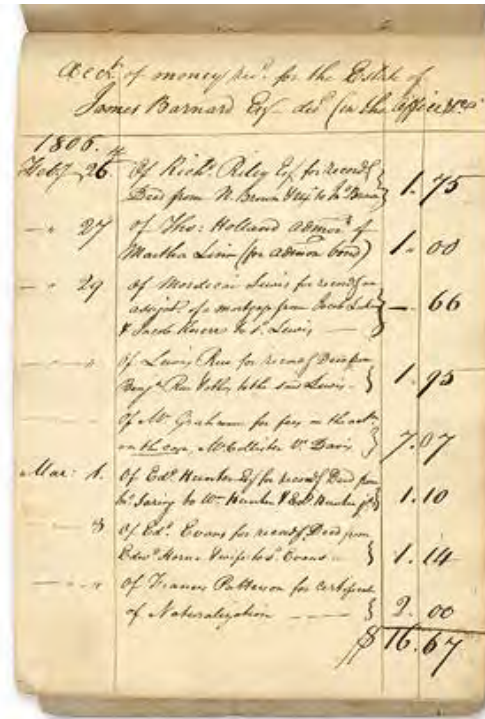 Acct. of money recd. for the Estate of
James Barnard Esq decd. (in the offices)
1806.
Feby 26 Of Richd. Riley Esq for recordg
Deed from N. Brown & ux to Jno. Brown } 1.75
" 27 of Tho: Holland admor. of
Martha Linn (for admon bond) 1.00
" 29 of Mordecai Lewis for recordg an
assignt. of a mortgage from Jacob
& Jacob to S. Lewis } — .66
Of Lewis Rue for recordg Deed from
Benj. Rue & others to the said Lewis } 1.95
Of Mr Graham for fees on the
on the case, McCollister Vs. Davis } 7.07
Mar: 1. Of Edd. Hunter Esq for recordg Deed from
to Wm Hunter & Edd. Hunter } 1.10
3 Of Edd. Evans for recordg Deed from
Edwd Horne & wife to S. Evans } 1.14
" Of Francis Patterson for certificate
of Naturalization } 2.00
$16.67